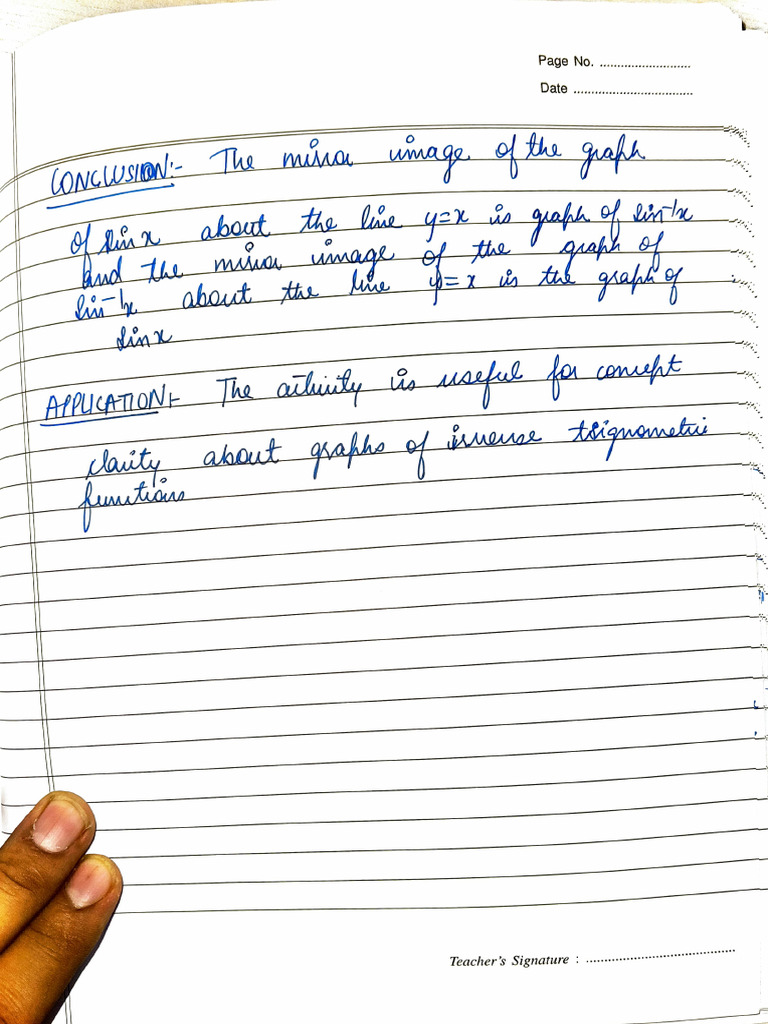 Page No. ..........................
Date ..................................
CONCLUSION:- The mirror image of the graph
of sin x about the line y=x is graph of sin⁻¹x
and the mirror image of the graph of
sin⁻¹x about the line y=x is the graph of
sin x
APPLICATION:- The activity is useful for concept
clarity about graphs of inverse trignometric
functions
Teacher's Signature : ..........................................